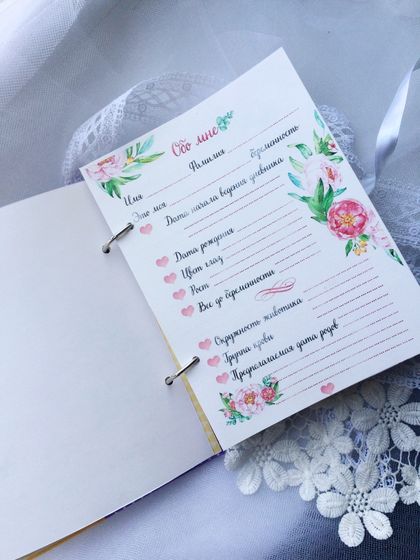 Обо мне
Имя Фамилия
Это моя беременность
Дата начала ведения дневника
Дата рождения
Цвет глаз
Рост
Вес до беременности
Окружность животика
Группа крови
Предполагаемая дата родов